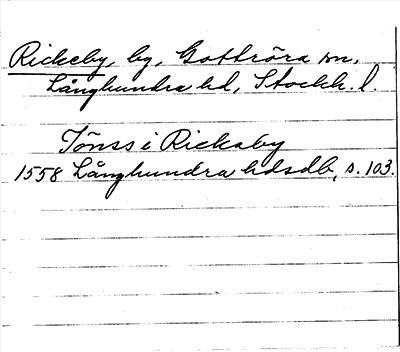 Rickeby, by, Gottröra sn,
Långhundra hd, Stockh. l.
Tönss i Rickaby
1558 Långhundra hdsdb, s. 103.